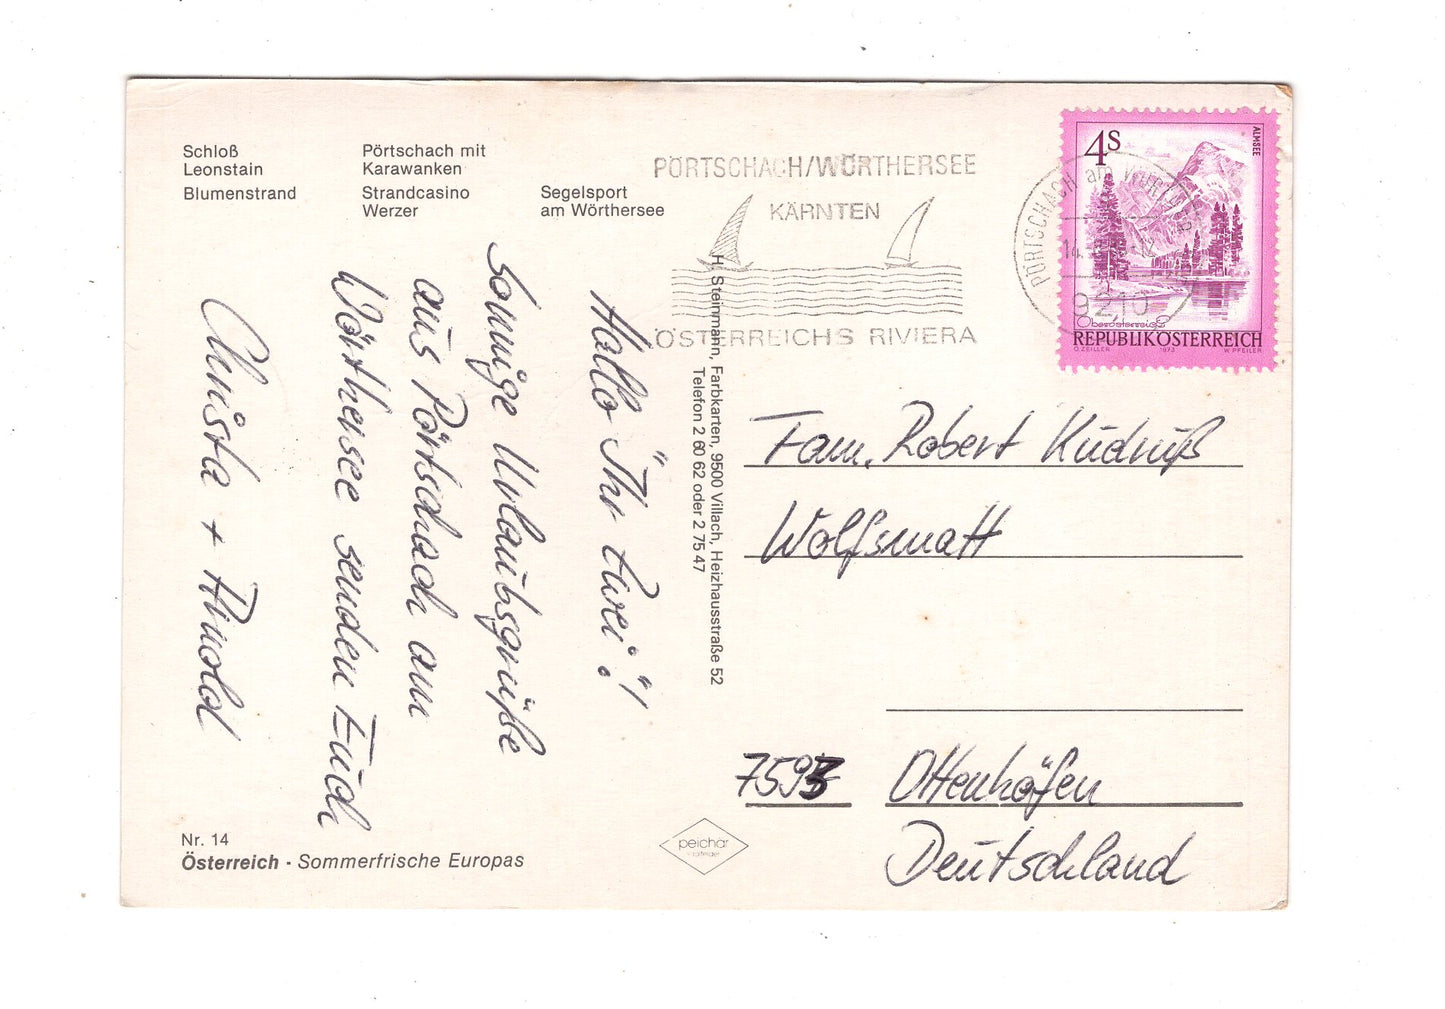 Schloß
Leonstain
Blumenstrand
Pörtschach mit
Karawanken
Strandcasino
Werzer
Segelsport
am Wörthersee
PÖRTSCHACH/WÖRTHERSEE
KÄRNTEN
ÖSTERREICHS RIVIERA
PÖRTSCHACH am
14.
9210
4S
ALMSEE
Oberösterreich
REPUBLIK ÖSTERREICH
O. ZEILLER 1973 W. PFEILER
Hallo "Ihr Zwei"!
Sonnige Urlaubsgrüße
aus Pörtschach am
Wörthersee senden Euch
Christa + Arnold
H. Steinmann, Farbkarten, 9500 Villach, Heizhausstraße 52
Telefon 2 60 62 oder 2 75 47
Fam. Robert Kudruß
Wolfsmatt
7593 Ottenhöfen
Deutschland
Nr. 14
Österreich - Sommerfrische Europas
peichär